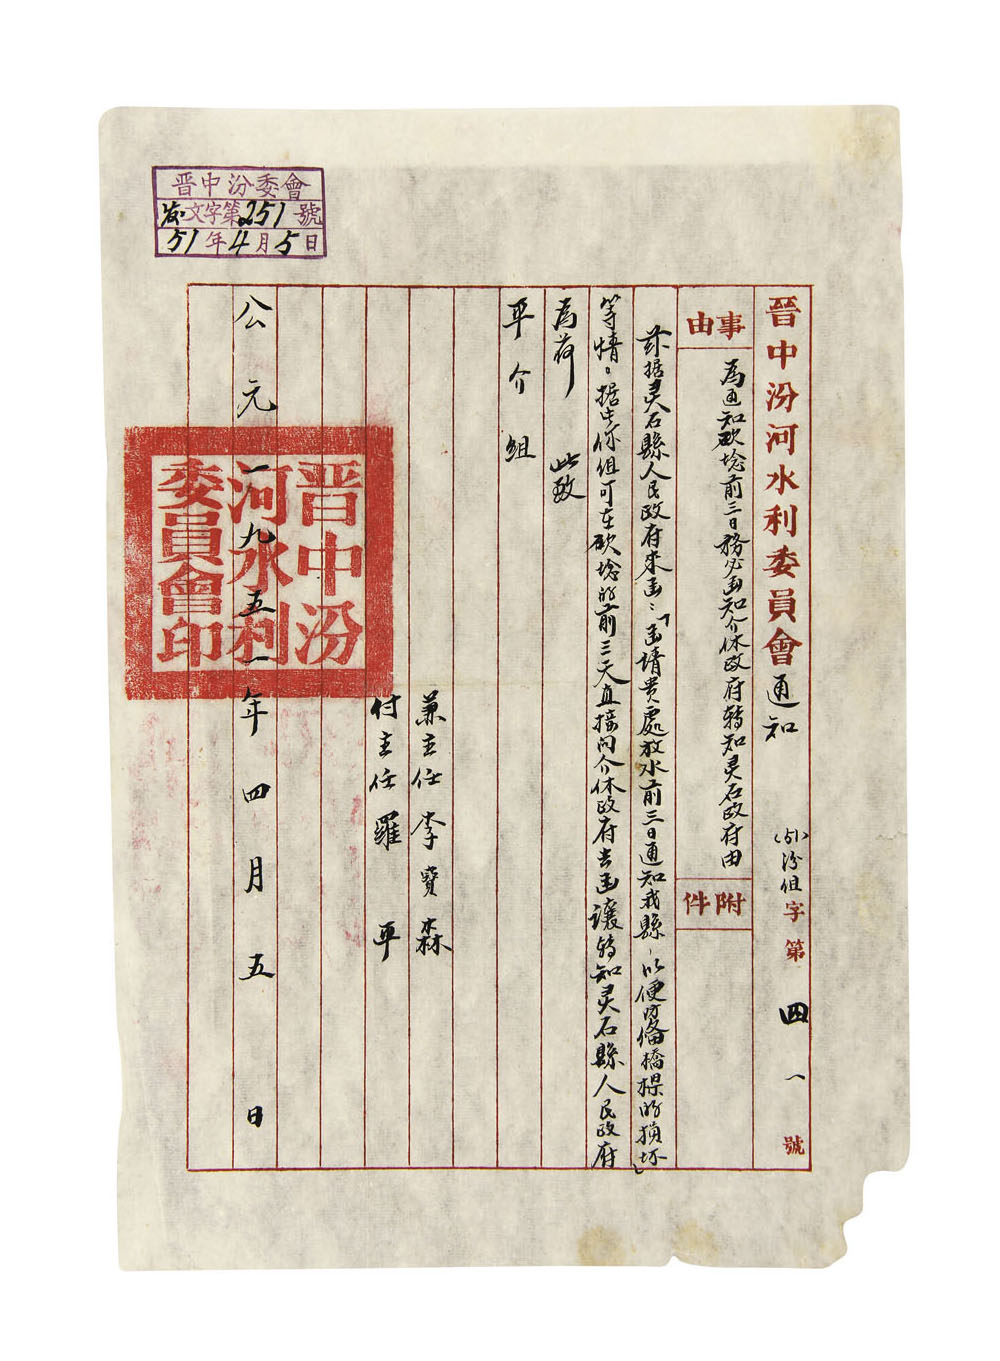 晋中汾河水利委員會通知
(51)汾组字第四一號
事由
為通知砍埝前三日務必函知介休政府轉知灵石政府由
附件
茲据灵石縣人民政府來函:「函請贵處放水前三日通知我縣，以便防備橋樑的損坏」
等情。据此你组可在砍埝的前三天直接向介休政府去函讓轉知灵石縣人民政府
為荷 此致
平介组
兼主任 李寶森
付主任 羅平
公元一九五一年四月五日
晋中汾河水利委員會印
晋中汾委會
发文字第251號
51年4月5日